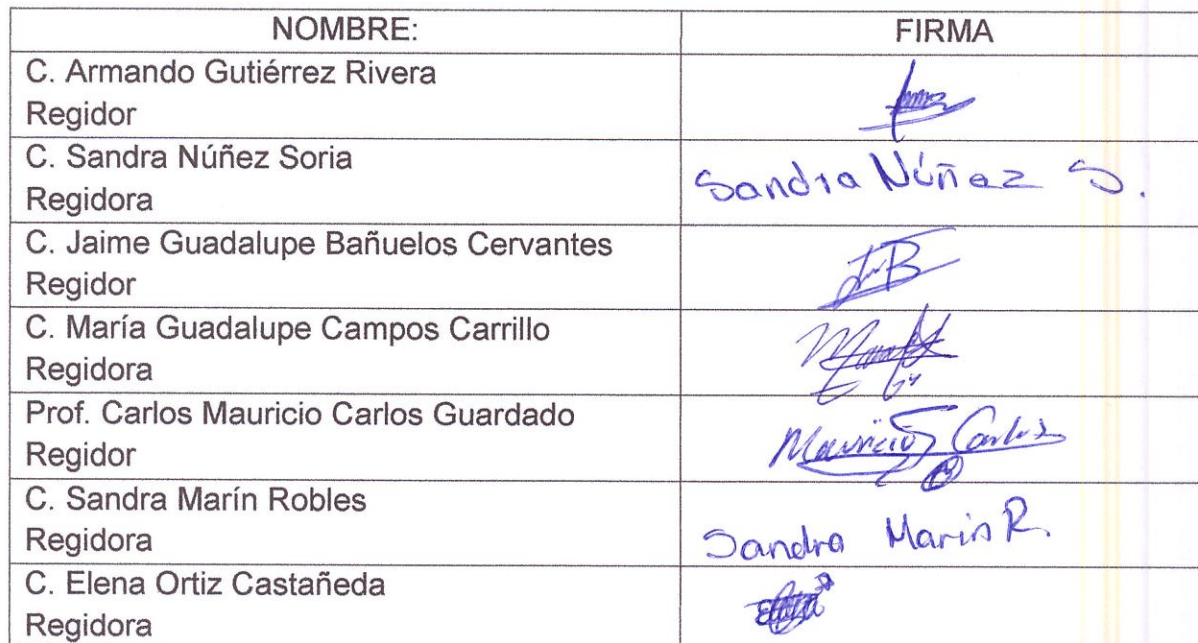 NOMBRE: FIRMA
C. Armando Gutiérrez Rivera
Regidor
C. Sandra Núñez Soria
Regidora
Sandra Núñez S.
C. Jaime Guadalupe Bañuelos Cervantes
Regidor
C. María Guadalupe Campos Carrillo
Regidora
Prof. Carlos Mauricio Carlos Guardado
Regidor
Mauricio Carlos
C. Sandra Marín Robles
Regidora
Sandra Marin R.
C. Elena Ortiz Castañeda
Regidora